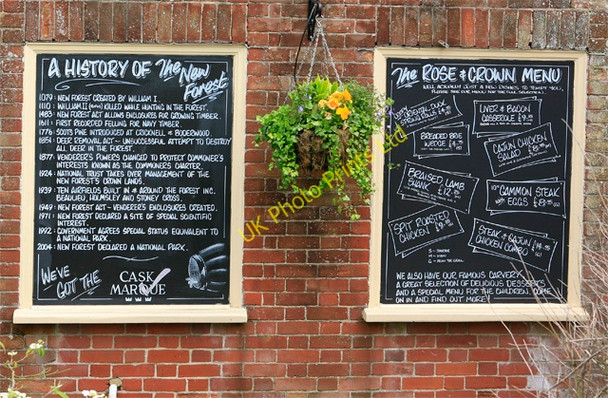 A HISTORY OF The New Forest
1079: NEW FOREST CREATED BY WILLIAM I.
1110: WILLIAM II KILLED WHILE HUNTING IN THE FOREST.
1483: NEW FOREST ACT ALLOWS ENCLOSURES FOR GROWING TIMBER.
1611: FIRST RECORDED FELLING FOR NAVY TIMBER
1776: SCOTS PINE INTRODUCED AT OCKNELL & BOLDERWOOD
1851: DEER REMOVAL ACT - UNSUCCESSFUL ATTEMPT TO DESTROY
ALL DEER IN THE FOREST.
1877: VENDERER'S POWERS CHANGED TO PROTECT COMMONER'S
INTERESTS KNOWN AS THE COMMONERS CHARTER.
1924: NATIONAL TRUST TAKES OVER MANAGEMENT OF THE
NEW FOREST'S CROWN LANDS.
1939: TEN AIRFIELDS BUILT IN & AROUND THE FOREST INC.
BEAULIEU, HOLMSLEY AND STONEY CROSS.
1949: NEW FOREST ACT - VENDERER'S ENCLOSURES CREATED.
1971: NEW FOREST DECLARED A SITE OF SPECIAL SCIENTIFIC
INTEREST.
1992: GOVERNMENT AGREES SPECIAL STATUS EQUIVALENT TO
A NATIONAL PARK.
2004: NEW FOREST DECLARED A NATIONAL PARK.
WE'VE
GOT THE
CASK
MARQUE
The ROSE & CROWN MENU
WELL ACTUALLY JUST A FEW DISHES TO TEMPT YOU,
PLEASE ASK FOR MENU FOR THE FULL SELECTION.
ORIENTAL DUCK
LIVER & BACON
CASSEROLE
BREADED BRIE
WEDGE
CAJUN CHICKEN
SALAD
BRAISED LAMB
SHANK
10oz GAMMON STEAK
WITH EGGS
SPIT ROASTED
CHICKEN
STEAK & CAJUN
CHICKEN COMBO
WE ALSO HAVE OUR FAMOUS CARVERY,
A GREAT SELECTION OF DELICIOUS DESSERTS
AND A SPECIAL MENU FOR THE CHILDREN. COME
ON IN AND FIND OUT MORE!
UK Photo Prints Ltd